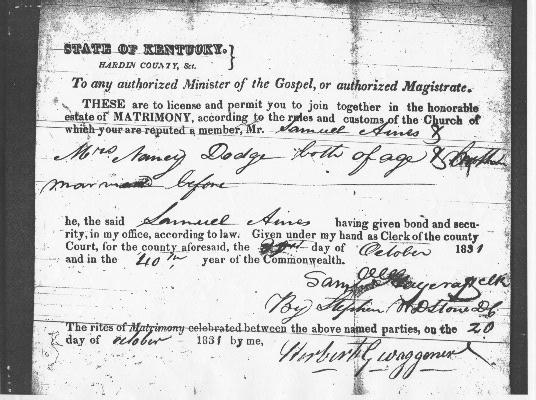 STATE OF KENTUCKY. }
HARDIN COUNTY, &c.
To any authorized Minister of the Gospel, or authorized Magistrate.
THESE are to license and permit you to join together in the honorable
estate of MATRIMONY, according to the rules and customs of the Church of
which your are reputed a member, Mr. Samuel Aines &
Mrs Nancy Dodge both of age &
before
he, the said Samuel Aines having given bond and secu-
rity, in my office, according to law. Given under my hand as Clerk of the county
Court, for the county aforesaid, the day of October 1831
and in the 40th year of the Commonwealth.
Saml Haycraft clk
By Stephen W D Stone DC
The rites of Matrimony celebrated between the above named parties, on the 20
day of october 1831 by me,
Herbert G Waggener